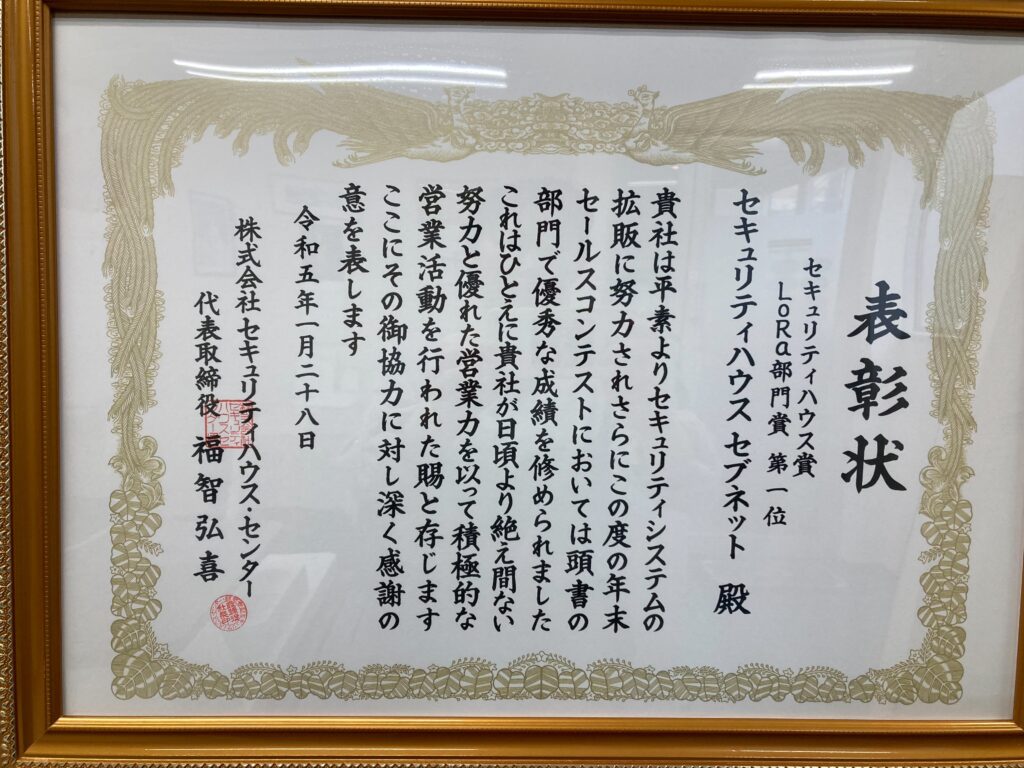 表彰状
セキュリティハウス賞
LoRa部門賞 第一位
セキュリティハウス セブネット 殿
貴社は平素よりセキュリティシステムの
拡販に努力されさらにこの度の年末
セールスコンテストにおいては頭書の
部門で優秀な成績を修められました
これはひとえに貴社が日頃より絶え間ない
努力と優れた営業力を以って積極的な
営業活動を行われた賜と存じます
ここにその御協力に対し深く感謝の
意を表します
令和五年一月二十八日
株式会社 セキュリティハウス・センター
代表取締役 福智弘喜